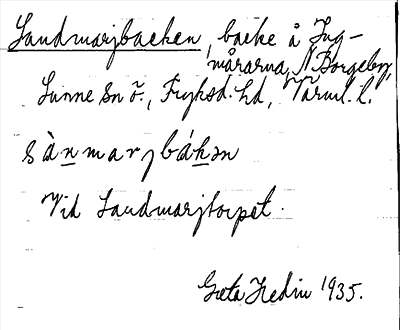 Sandmarjbacken, backe å Jug-
mårarna, N. Borgeby,
Sunne sn ö., Fryksd. hd, Värml. l.
sànmarjbákən
Vid Sandmarjtorpet.
Greta Hedin 1935.